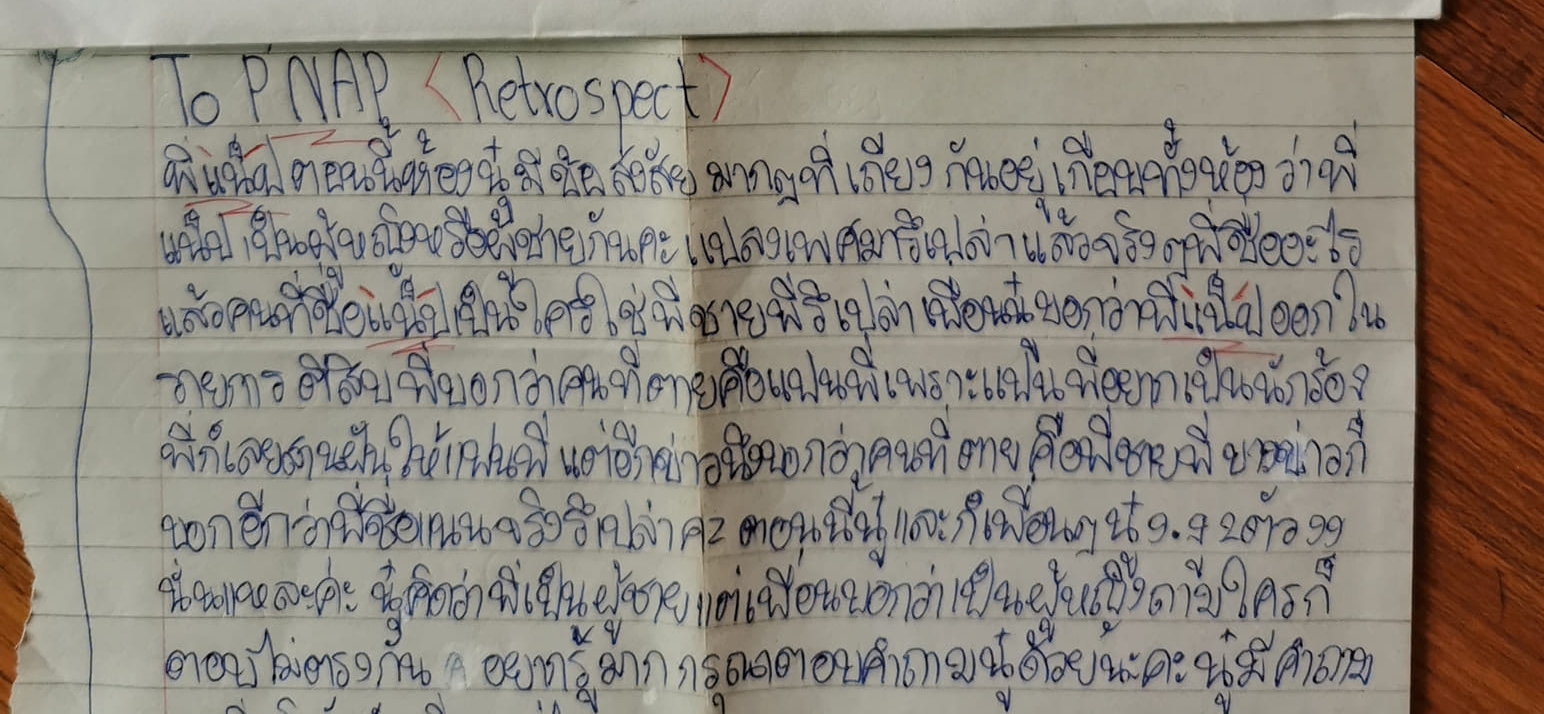 To P'NAP <Retrospect>
พี่แน็ปตอนนี้ห้องนู๋มีข้อสงสัยมากๆที่เถียงกันอยู่เกือบทั้งห้องว่าพี่
แน็ปเป็นผู้หญิงหรือผู้ชายกันคะแปลงเพศมารึเปล่าแล้วจริงๆพี่ชื่ออะไร
แล้วคนที่ชื่อแน็ปเป็นใครใช่พี่ชายพี่รึเปล่าเพื่อนนู๋บอกว่าพี่แน็ปออกใน
รายการตีสิบพี่บอกว่าคนที่ตายคือแฟนพี่เพราะแฟนพี่อยากเป็นนักร้อง
พี่ก็เลยสานฝันให้แฟนพี่ แต่อีกข่าวนึงบอกว่าคนที่ตายคือพี่ชายพี่ บางข่าวก็
บอกอีกว่าพี่ชื่อแนนจริงรึเปล่าคะ ตอนนี้นู๋และก็เพื่อนๆนู๋ ง.ง 2ตัว งง
นั่นแหละค่ะ นู๋คิดว่าพี่เป็นผู้ชายแต่เพื่อนบอกว่าเป็นผู้หญิงถามใครก็
ตอบไม่ตรงกัน อยากรู้มากกรุณาตอบคำถามนู๋ด้วยนะคะนู๋มีคำถาม